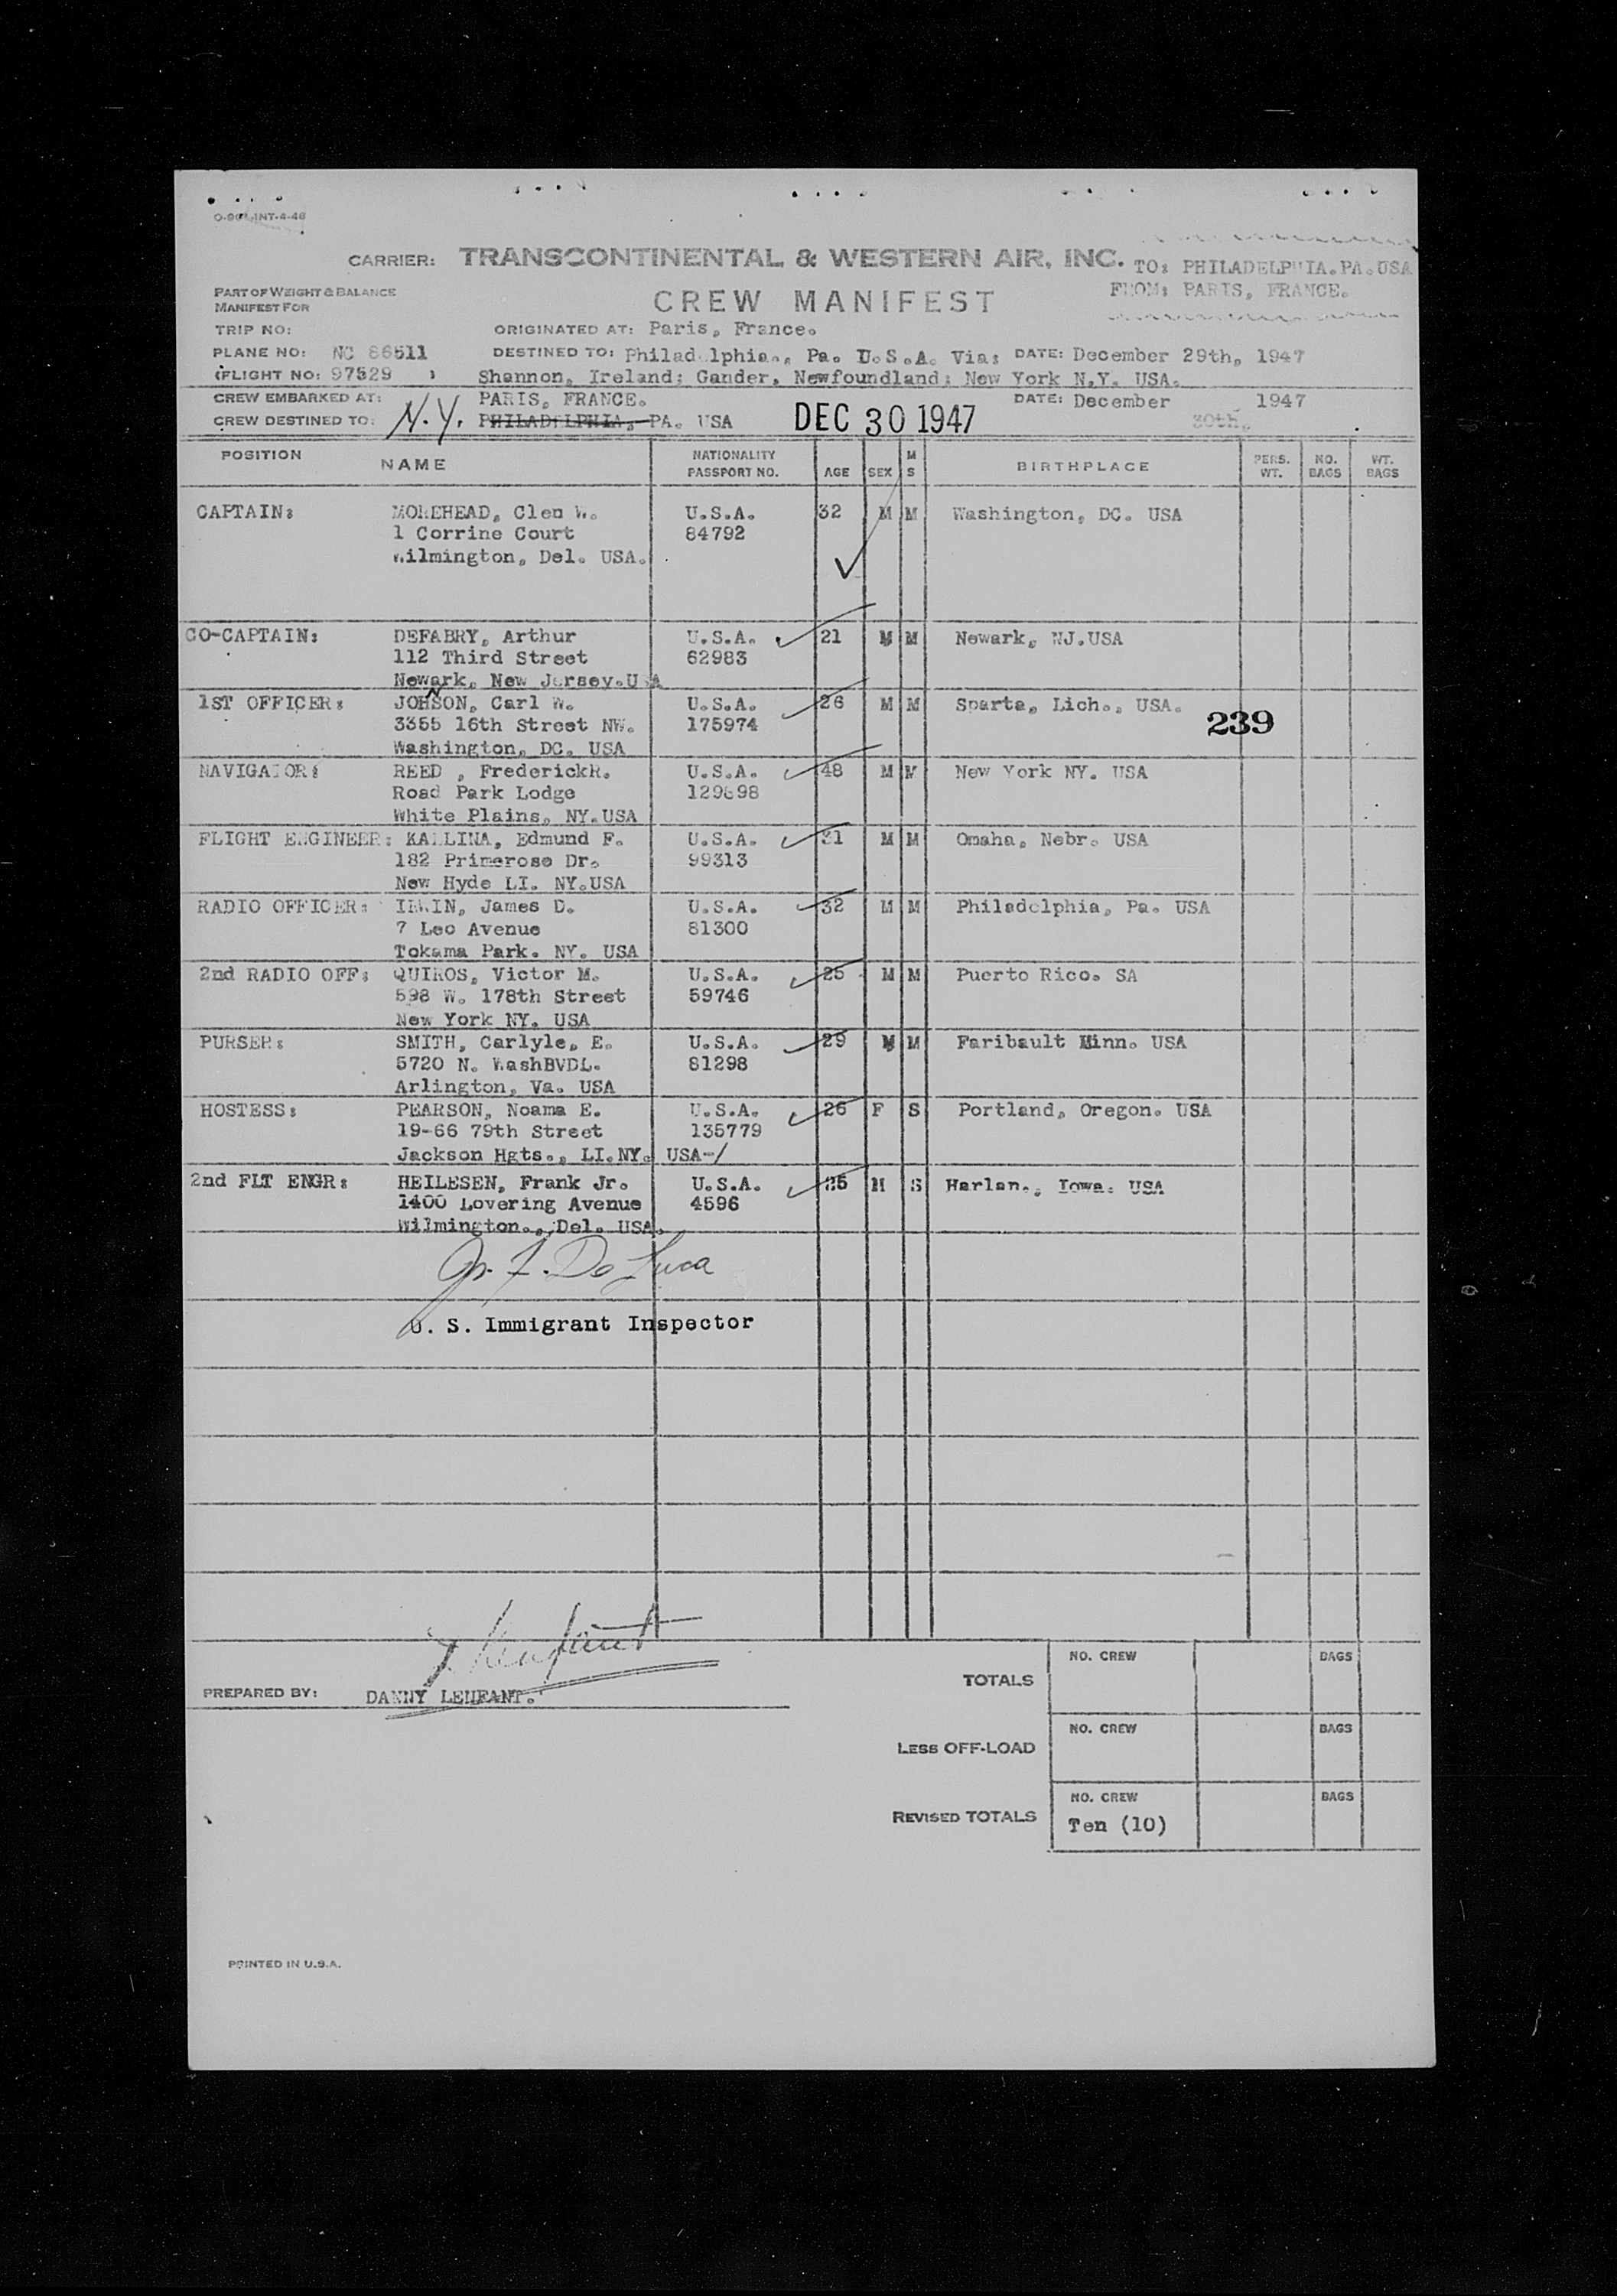 CARRIER: TRANSCONTINENTAL & WESTERN AIR, INC. TO: PHILADELPHIA.PA.USA
PART OF WEIGHT & BALANCE
MANIFEST FOR
CREW MANIFEST FROM: PARIS, FRANCE.
TRIP NO: ORIGINATED AT: Paris, France.
PLANE NO: NC 86511 DESTINED TO: Philadelphia., Pa. U.S.A. Via: DATE: December 29th, 1947
(FLIGHT NO: 97529 ) Shannon, Ireland; Gander, Newfoundland; New York N.Y. USA.
CREW EMBARKED AT: PARIS, FRANCE. DATE: December 30th, 1947
CREW DESTINED TO: N.Y. PHILADELPHIA, PA. USA DEC 30 1947
POSITION NAME NATIONALITY PASSPORT NO. AGE SEX M S BIRTHPLACE PERS. WT. NO. BAGS WT. BAGS
CAPTAIN: MOREHEAD, Glen W. U.S.A. 32 M M Washington, DC. USA
1 Corrine Court 84792
Wilmington, Del. USA.
CO-CAPTAIN: DEFABRY, Arthur U.S.A. 21 M M Newark, NJ.USA
112 Third Street 62983
Newark, New Jersey.USA
1ST OFFICER: JOHNSON, Carl W. U.S.A. 26 M M Sparta, Lich., USA.
3355 16th Street NW. 175974 239
Washington, DC. USA
NAVIGATOR: REED , FrederickR. U.S.A. 48 M M New York NY. USA
Road Park Lodge
White Plains, NY.USA
FLIGHT ENGINEER: KALLINA, Edmund F. U.S.A. 31 M M Omaha, Nebr. USA
182 Primerose Dr. 99313
New Hyde LI. NY.USA
RADIO OFFICER: IRWIN, James D. U.S.A. 32 M M Philadelphia, Pa. USA
7 Leo Avenue 81300
Tokama Park. NY. USA
2nd RADIO OFF: QUIROS, Victor M. U.S.A. 25 M M Puerto Rico. SA
598 W. 178th Street 59746
New York NY. USA
PURSER: SMITH, Carlyle, E. U.S.A. 29 M M Faribault Minn. USA
5720 N. WashBVDL. 81298
Arlington, Va. USA
HOSTESS: PEARSON, Noama E. U.S.A. 26 F S Portland, Oregon. USA
19-66 79th Street 135779
Jackson Hgts., LI.NY. USA-/
2nd FLT ENGR: HEILESEN, Frank Jr. U.S.A. M S Harlan., Iowa. USA
1400 Lovering Avenue 4596
Wilmington., Del. USA.
De Luca
U. S. Immigrant Inspector
PREPARED BY: DANNY LENFANT.
TOTALS NO. CREW BAGS
LESS OFF-LOAD NO. CREW BAGS
REVISED TOTALS NO. CREW BAGS
Ten (10)
PRINTED IN U.S.A.